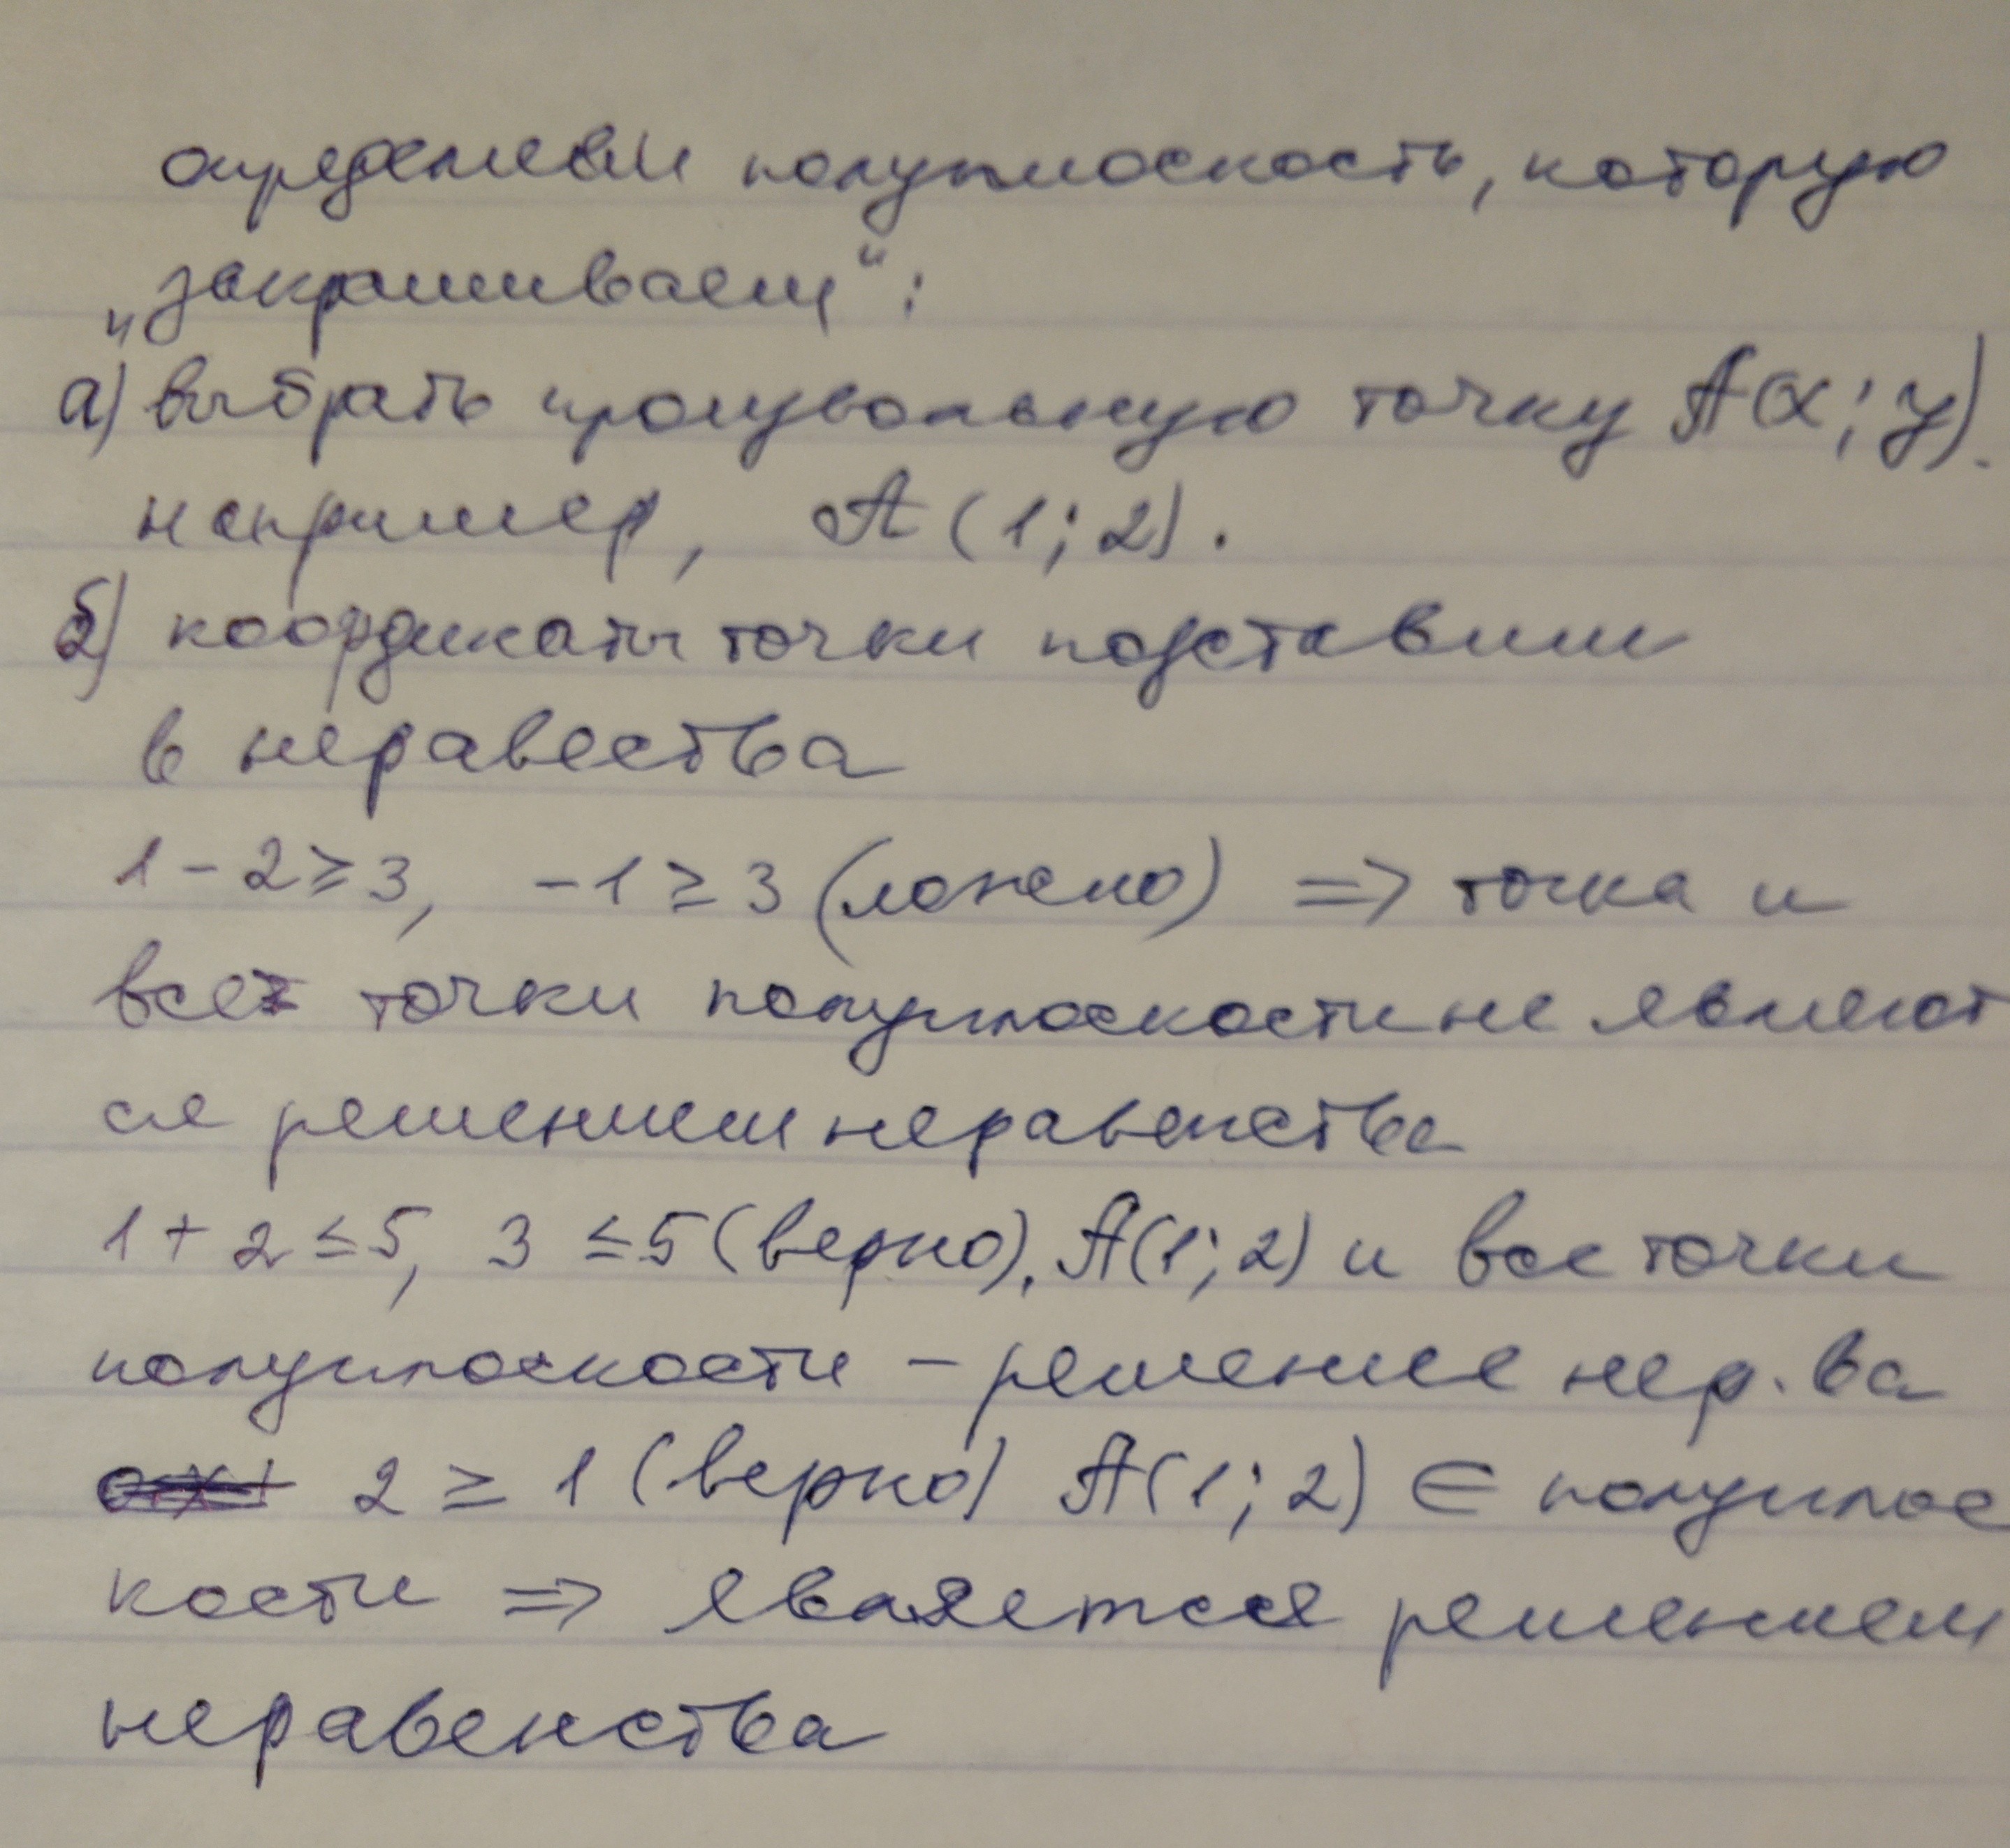 определяем полуплоскость, которую
„закрашиваем“:
а) выбрать произвольную точку A(x; y).
например, A(1; 2).
б) координаты точки подставим
в неравества
1 - 2 ≥ 3, -1 ≥ 3 (ложно) => точка и
все точки полуплоскости не являют
ся решением неравенства
1 + 2 ≤ 5, 3 ≤ 5 (верно). A(1; 2) и все точки
полуплоскости – решение нер. ва
2 ≥ 1 (верно) A(1; 2) ∈ полуплос
кости => является решением
неравенства